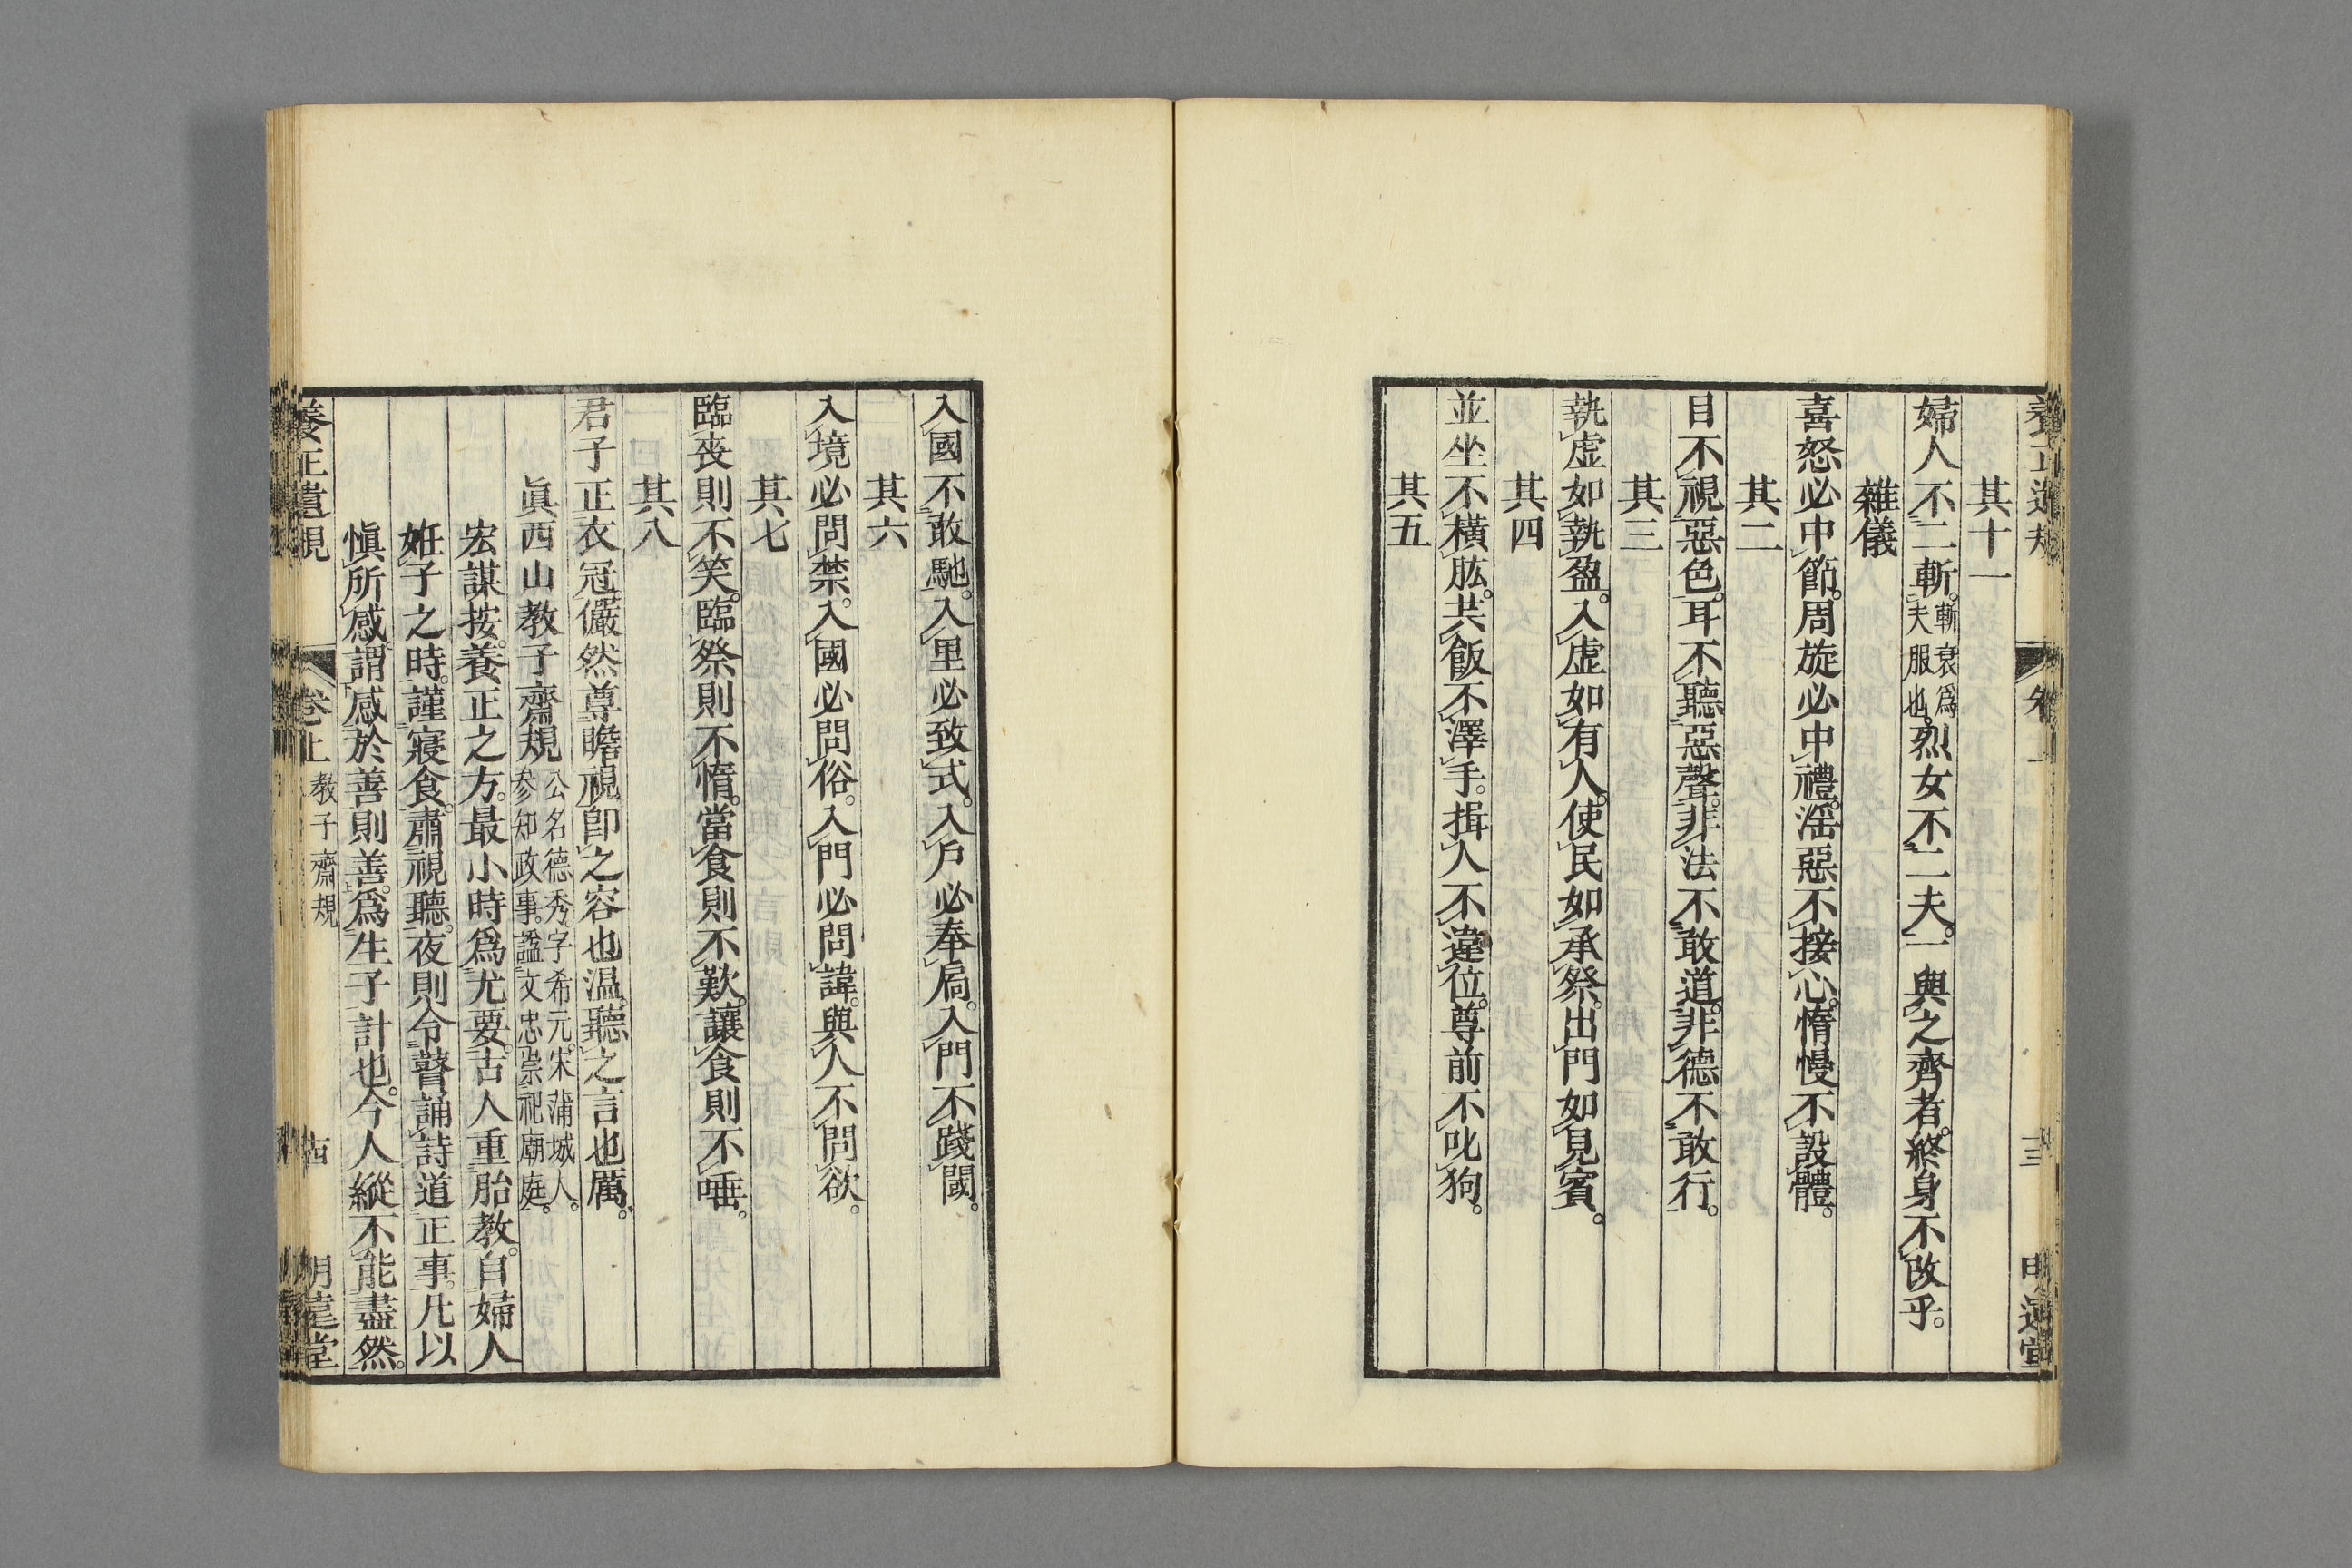 其十一
婦人不二斬。斬衰爲夫服也。烈女不二夫。一與之齊者。終身不改乎。
雜儀
喜怒必中節。周旋必中禮。淫惡不接心。惰慢不設體。
其二
目不視惡色。耳不聽惡聲。非法不敢道。非德不敢行。
其三
執虛如執盈。入虛如有人。使民如承祭。出門如見賓。
其四
並坐不橫肱。共飯不澤手。揖人不違位。尊前不叱狗。
其五
入國不敢馳。入里必致式。入戶必奉扃。入門不踐閾。
其六
入境必問禁。入國必問俗。入門必問諱。與人不問欲。
其七
臨喪則不笑。臨祭則不惰。當食則不歎。讓食則不唾。
其八
君子正衣冠。儼然尊瞻視。卽之容也温。聽之言也厲。
眞西山教子齋規
公名德秀字希元。宋蒲城人。
参知政事。諡文忠祟祀廟庭。
宏謀按。養正之方。最小時爲尤要。古人重胎教。自婦人
姙子之時。謹寢食。肅視聽。夜則令瞽誦詩道正事。凡以
愼所感。謂感於善則善。爲生子計也。今人縱不能盡然。
養正遺規 卷上 教子齋規 明遠堂